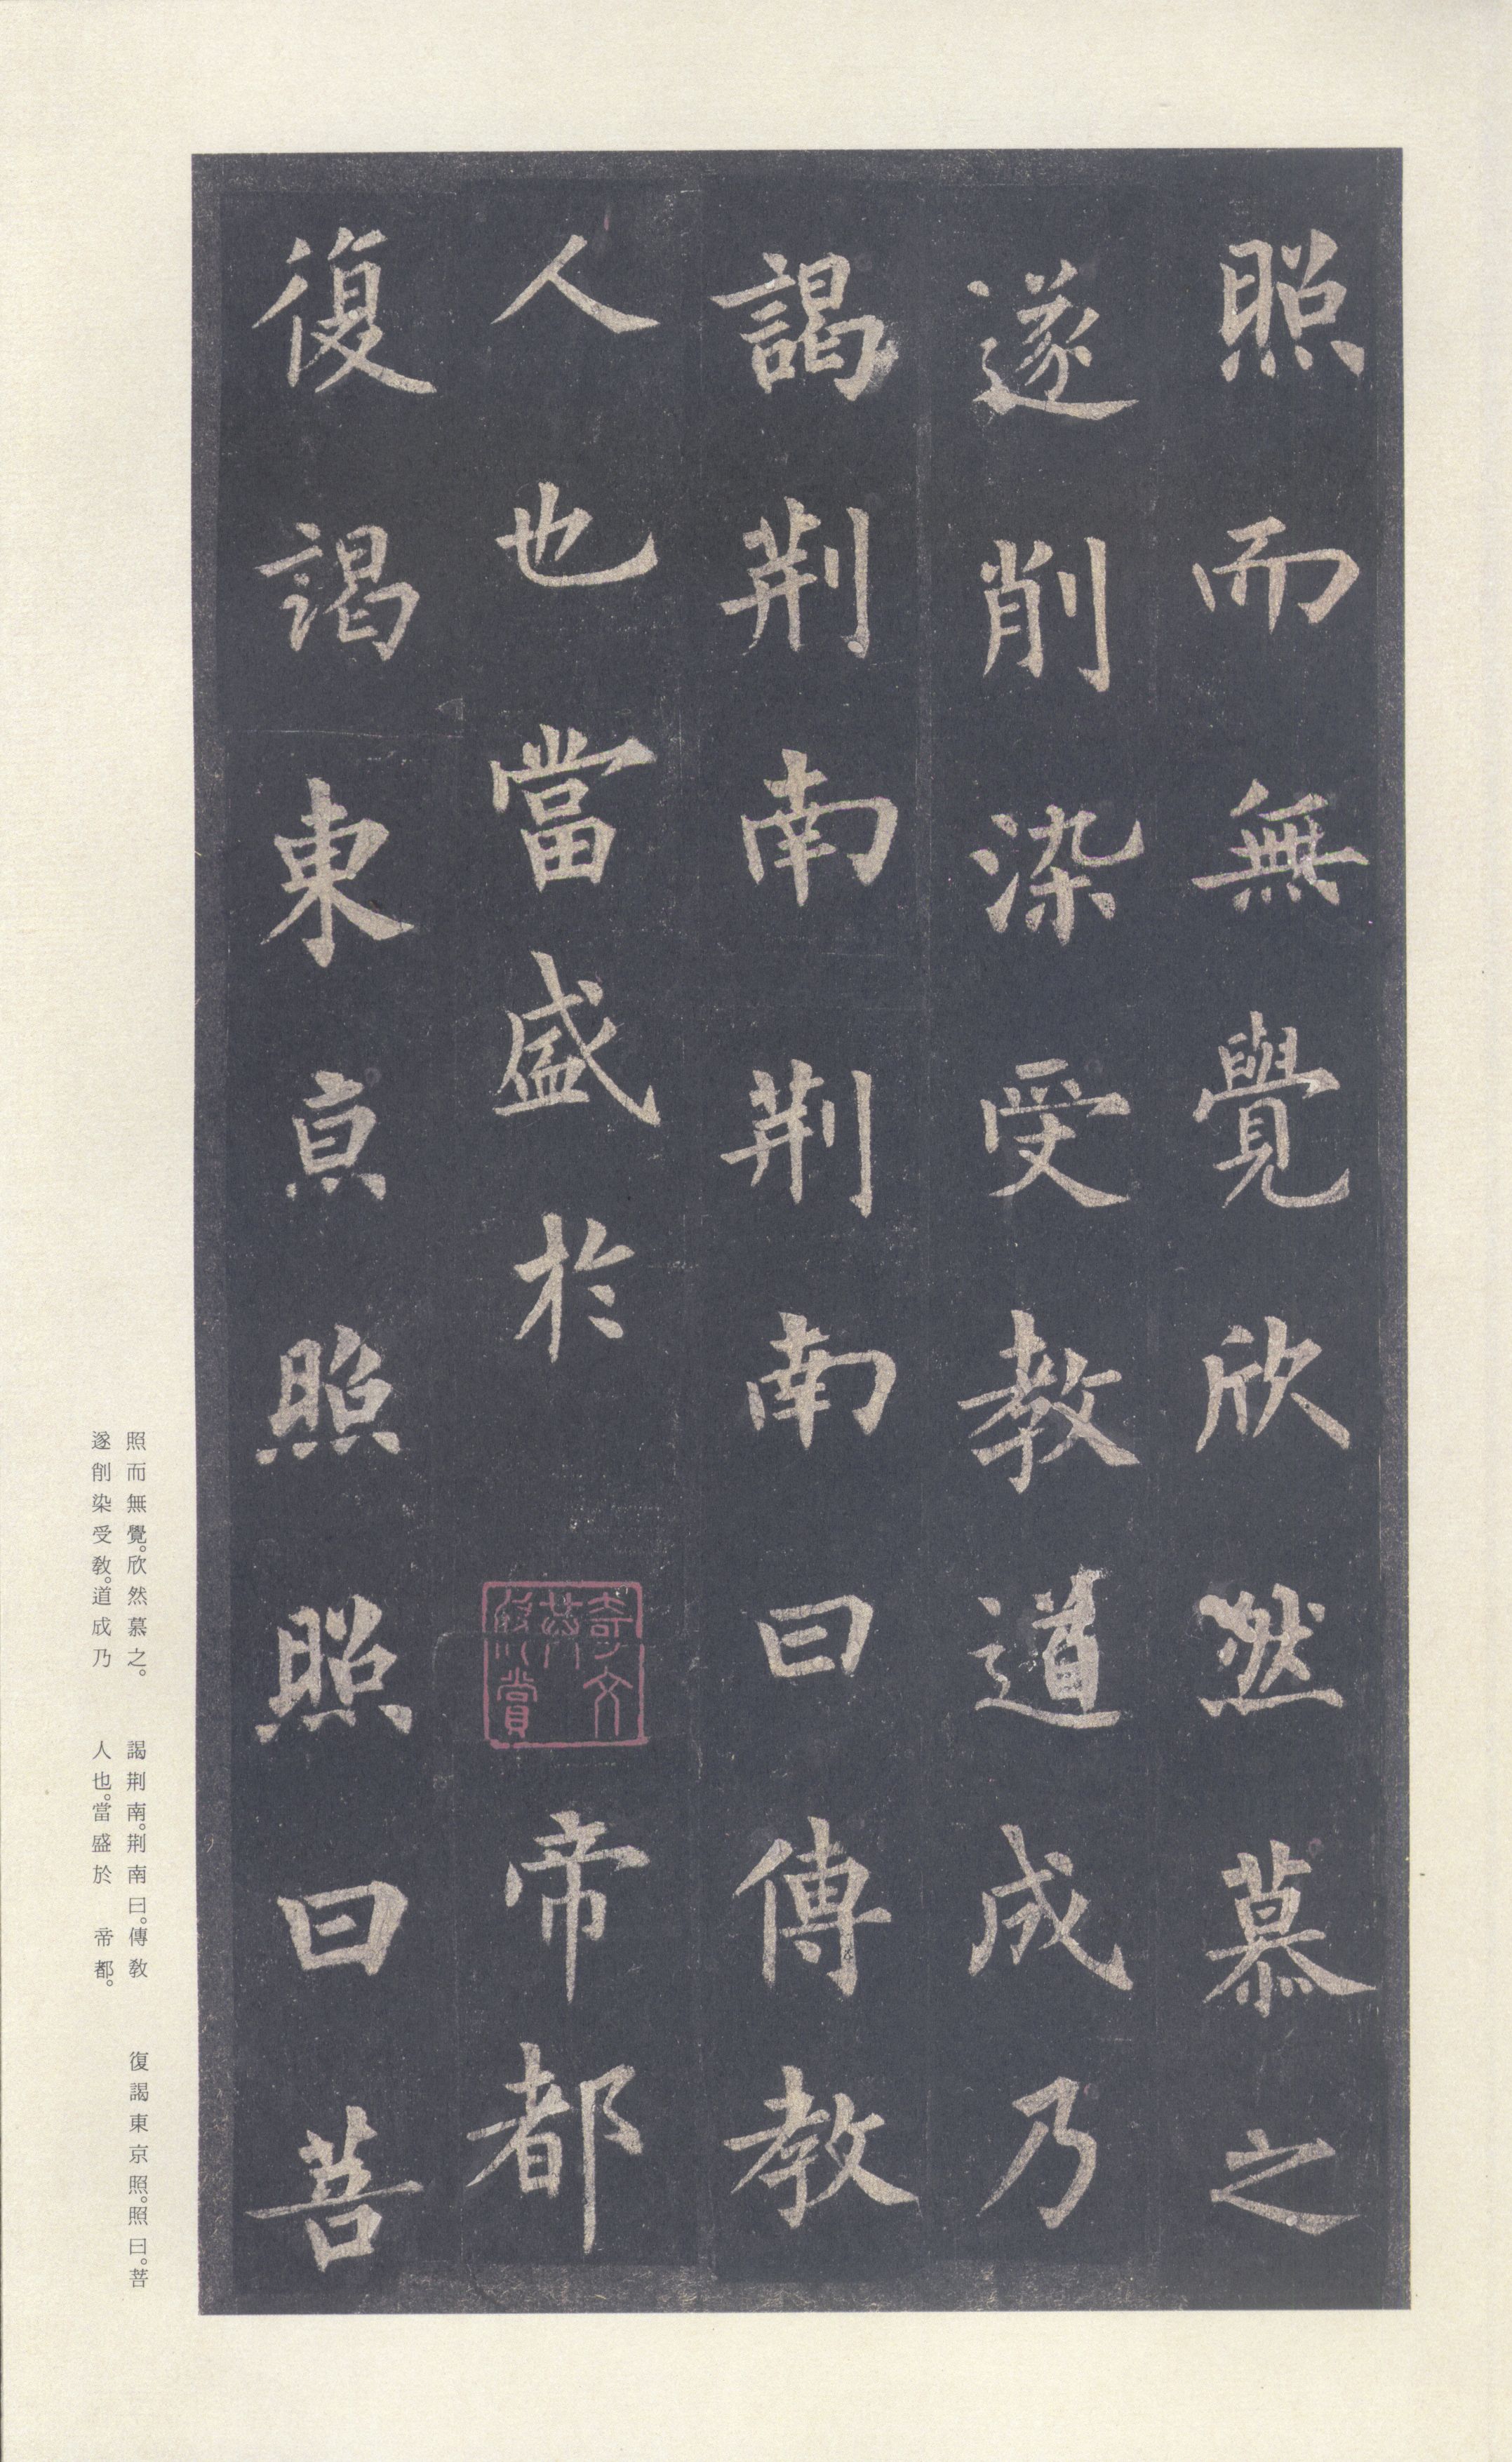 照而無覺欣然慕之
遂削染受教道成乃
謁荆南荆南曰傳教
人也當盛於 帝都
奇文共欣賞
復謁東京照照曰菩
照而無覺。欣然慕之。
遂削染受教。道成乃
謁荆南。荆南曰。傳教
人也。當盛於 帝都。
復謁東京照。照曰。菩